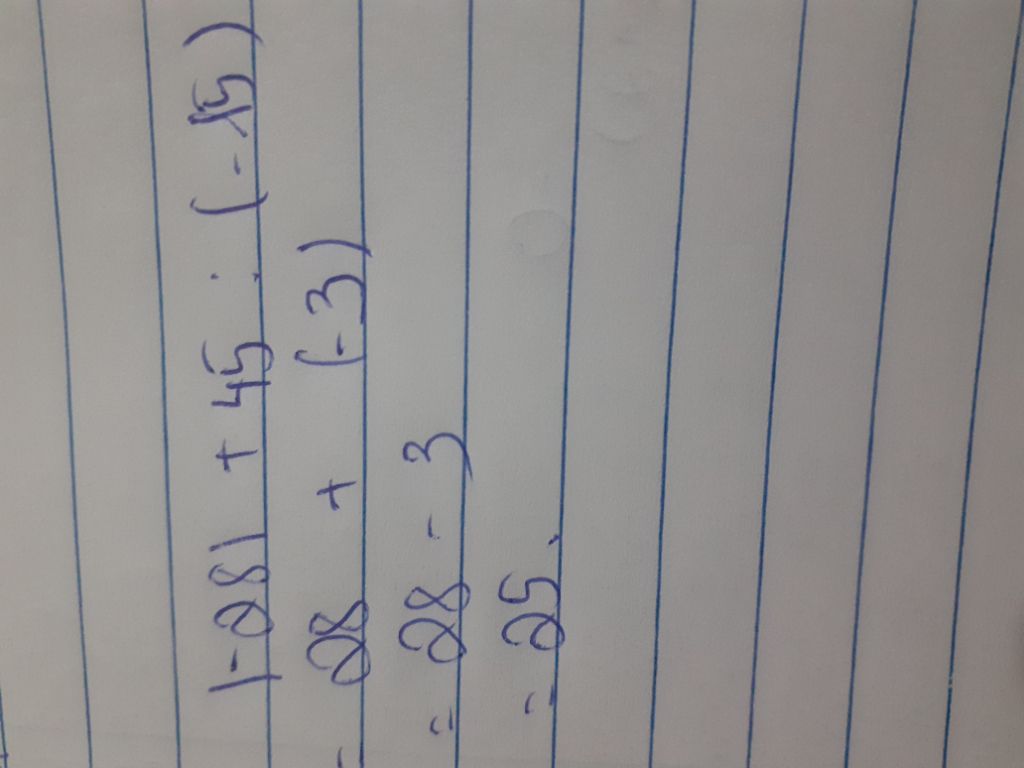 |-28| + 45 : (-15)
= 28 + (-3)
= 28 - 3
= 25.